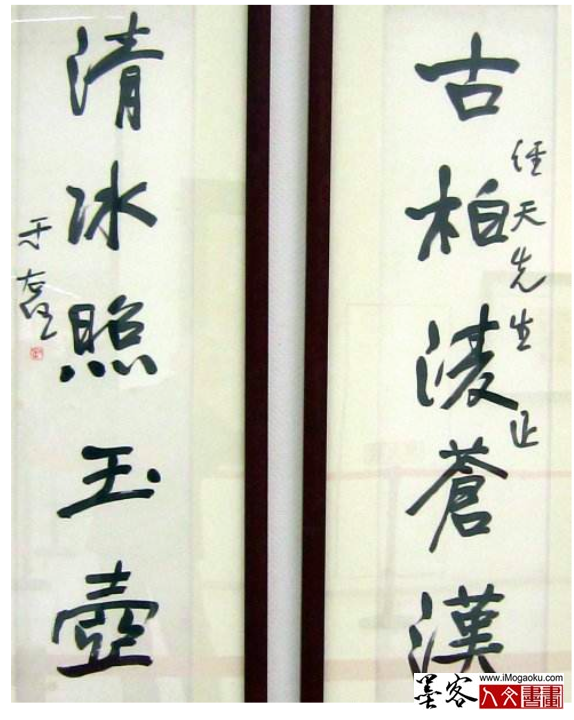 古柏淩蒼漢
經天先生正
清冰照玉壺
于右任
www.iMogaoku.com
墨客
人文書畫